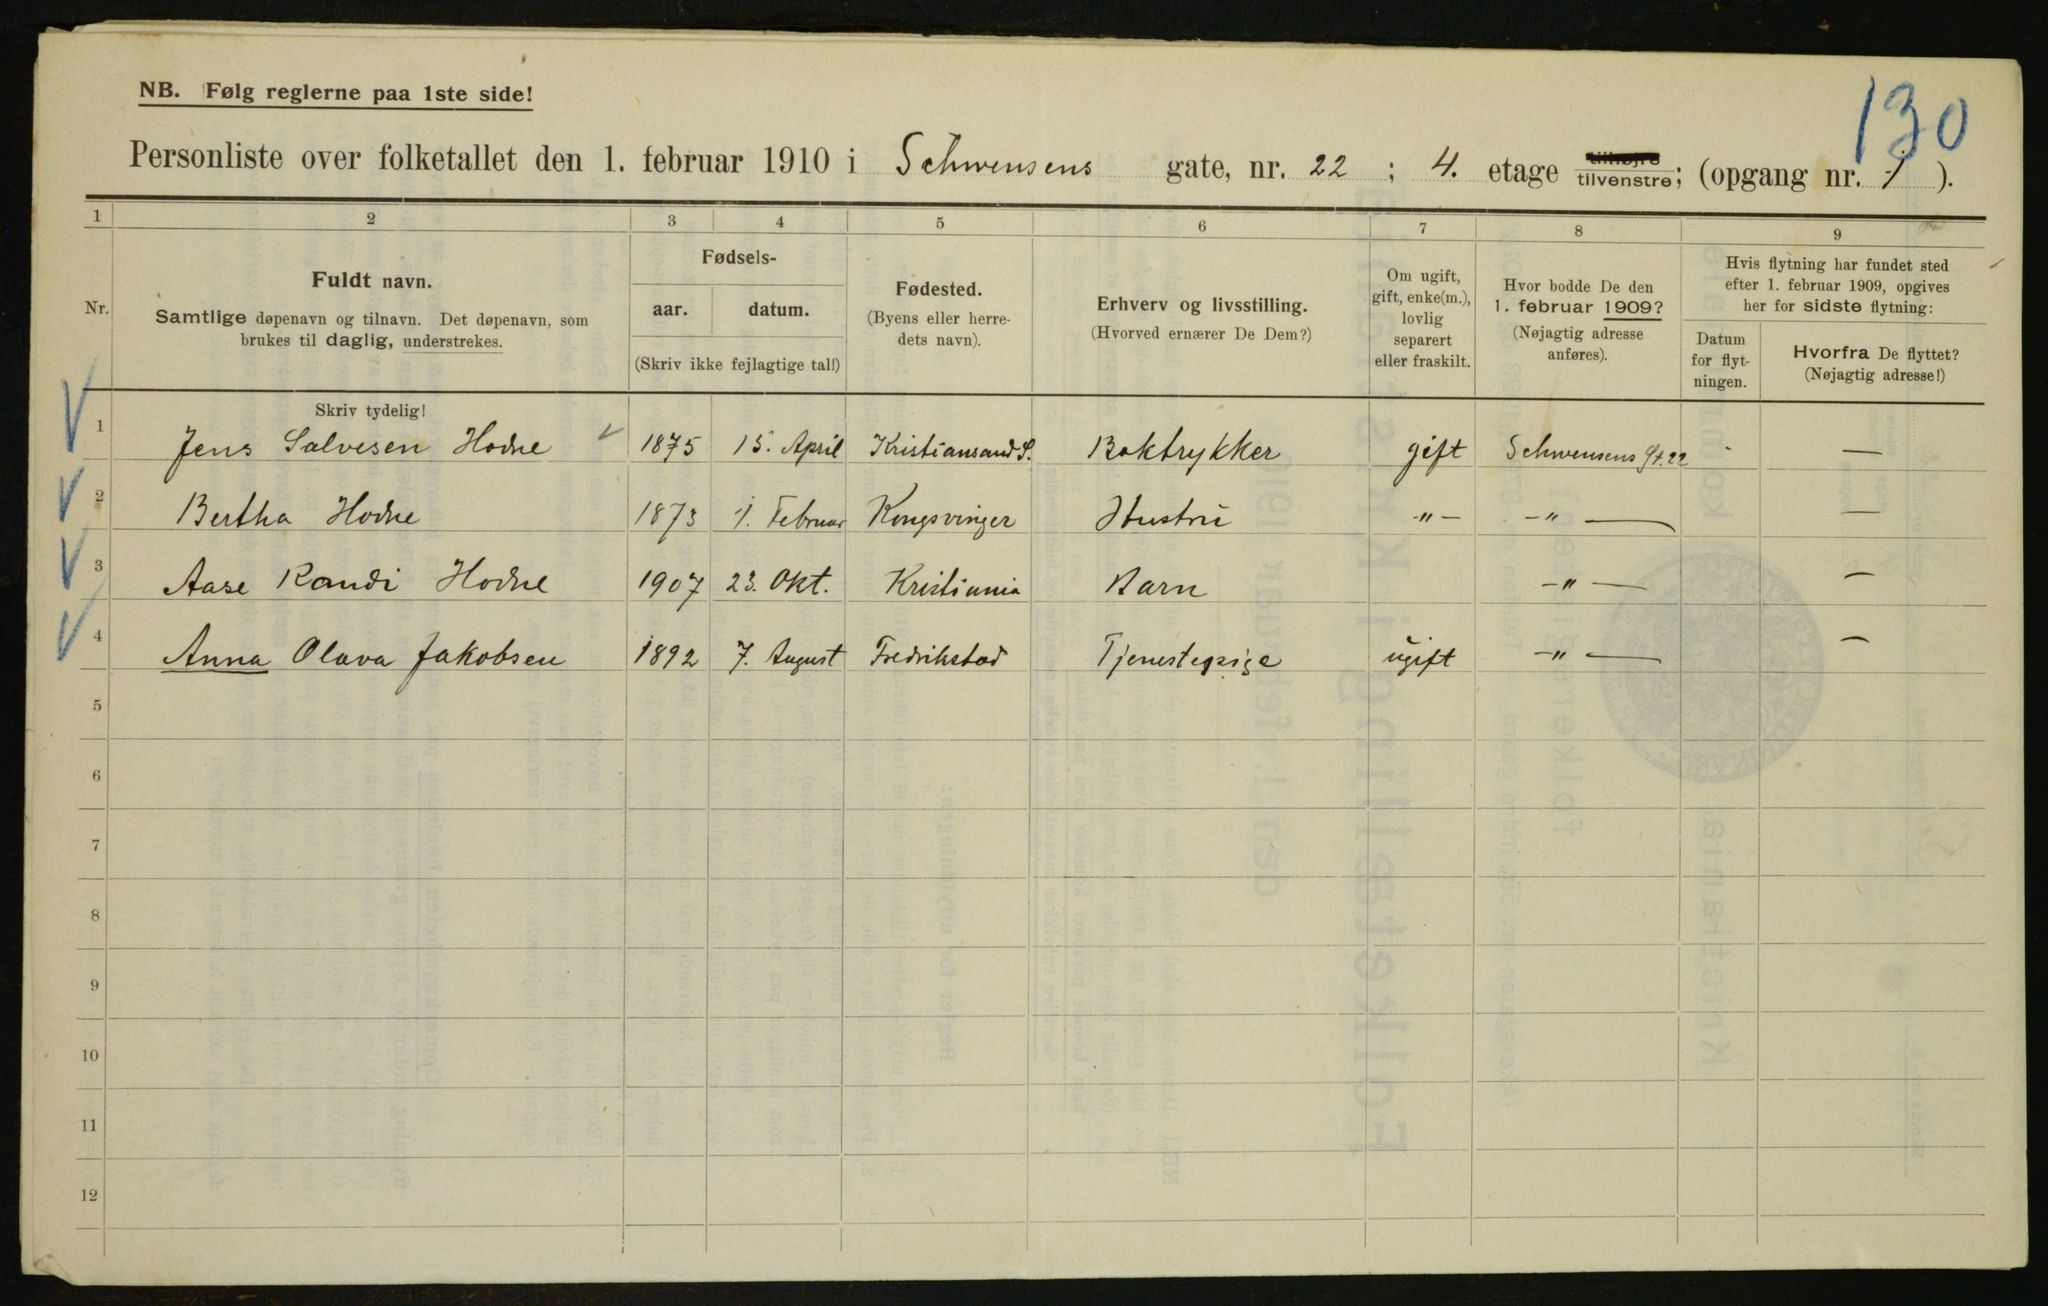 130
NB. Følg reglerne paa 1ste side!
Personliste over folketallet den 1. februar 1910 i Schwensens gate, nr. 22 ; 4. etage tilhøjre tilvenstre; (opgang nr. 1 ).
1 2 3 4 5 6 7 8 9
Nr.
Fuldt navn.
Samtlige døpenavn og tilnavn. Det døpenavn, som
brukes til daglig, understrekes.
Fødsels-
aar. datum.
(Skriv ikke fejlagtige tal!)
Fødested.
(Byens eller herre-
dets navn).
Erhverv og livsstilling.
(Hvorved ernærer De Dem?)
Om ugift,
gift, enke(m.),
lovlig
separert
eller fraskilt.
Hvor bodde De den
1. februar 1909?
(Nøjagtig adresse
anføres).
Hvis flytning har fundet sted
efter 1. februar 1909, opgives
her for sidste flytning:
Datum
for flyt-
ningen.
Hvorfra De flyttet?
(Nøjagtig adresse!)
Skriv tydelig!
1 Jens Salvesen Hodne 1875 15. April Kristiansand S. Boktrykker gift Schwensens Gt. 22 - —
2 Bertha Hodne 1873 1. Februar Kongsvinger Hustru -"- -"- —
3 Aase Randi Hodne 1907 23. Okt. Kristiania Barn -"- —
4 Anna Olava Jakobsen 1892 7. August Fredrikstad Tjenestepige ugift -"- —
5
6
7
8
9
10
11
12